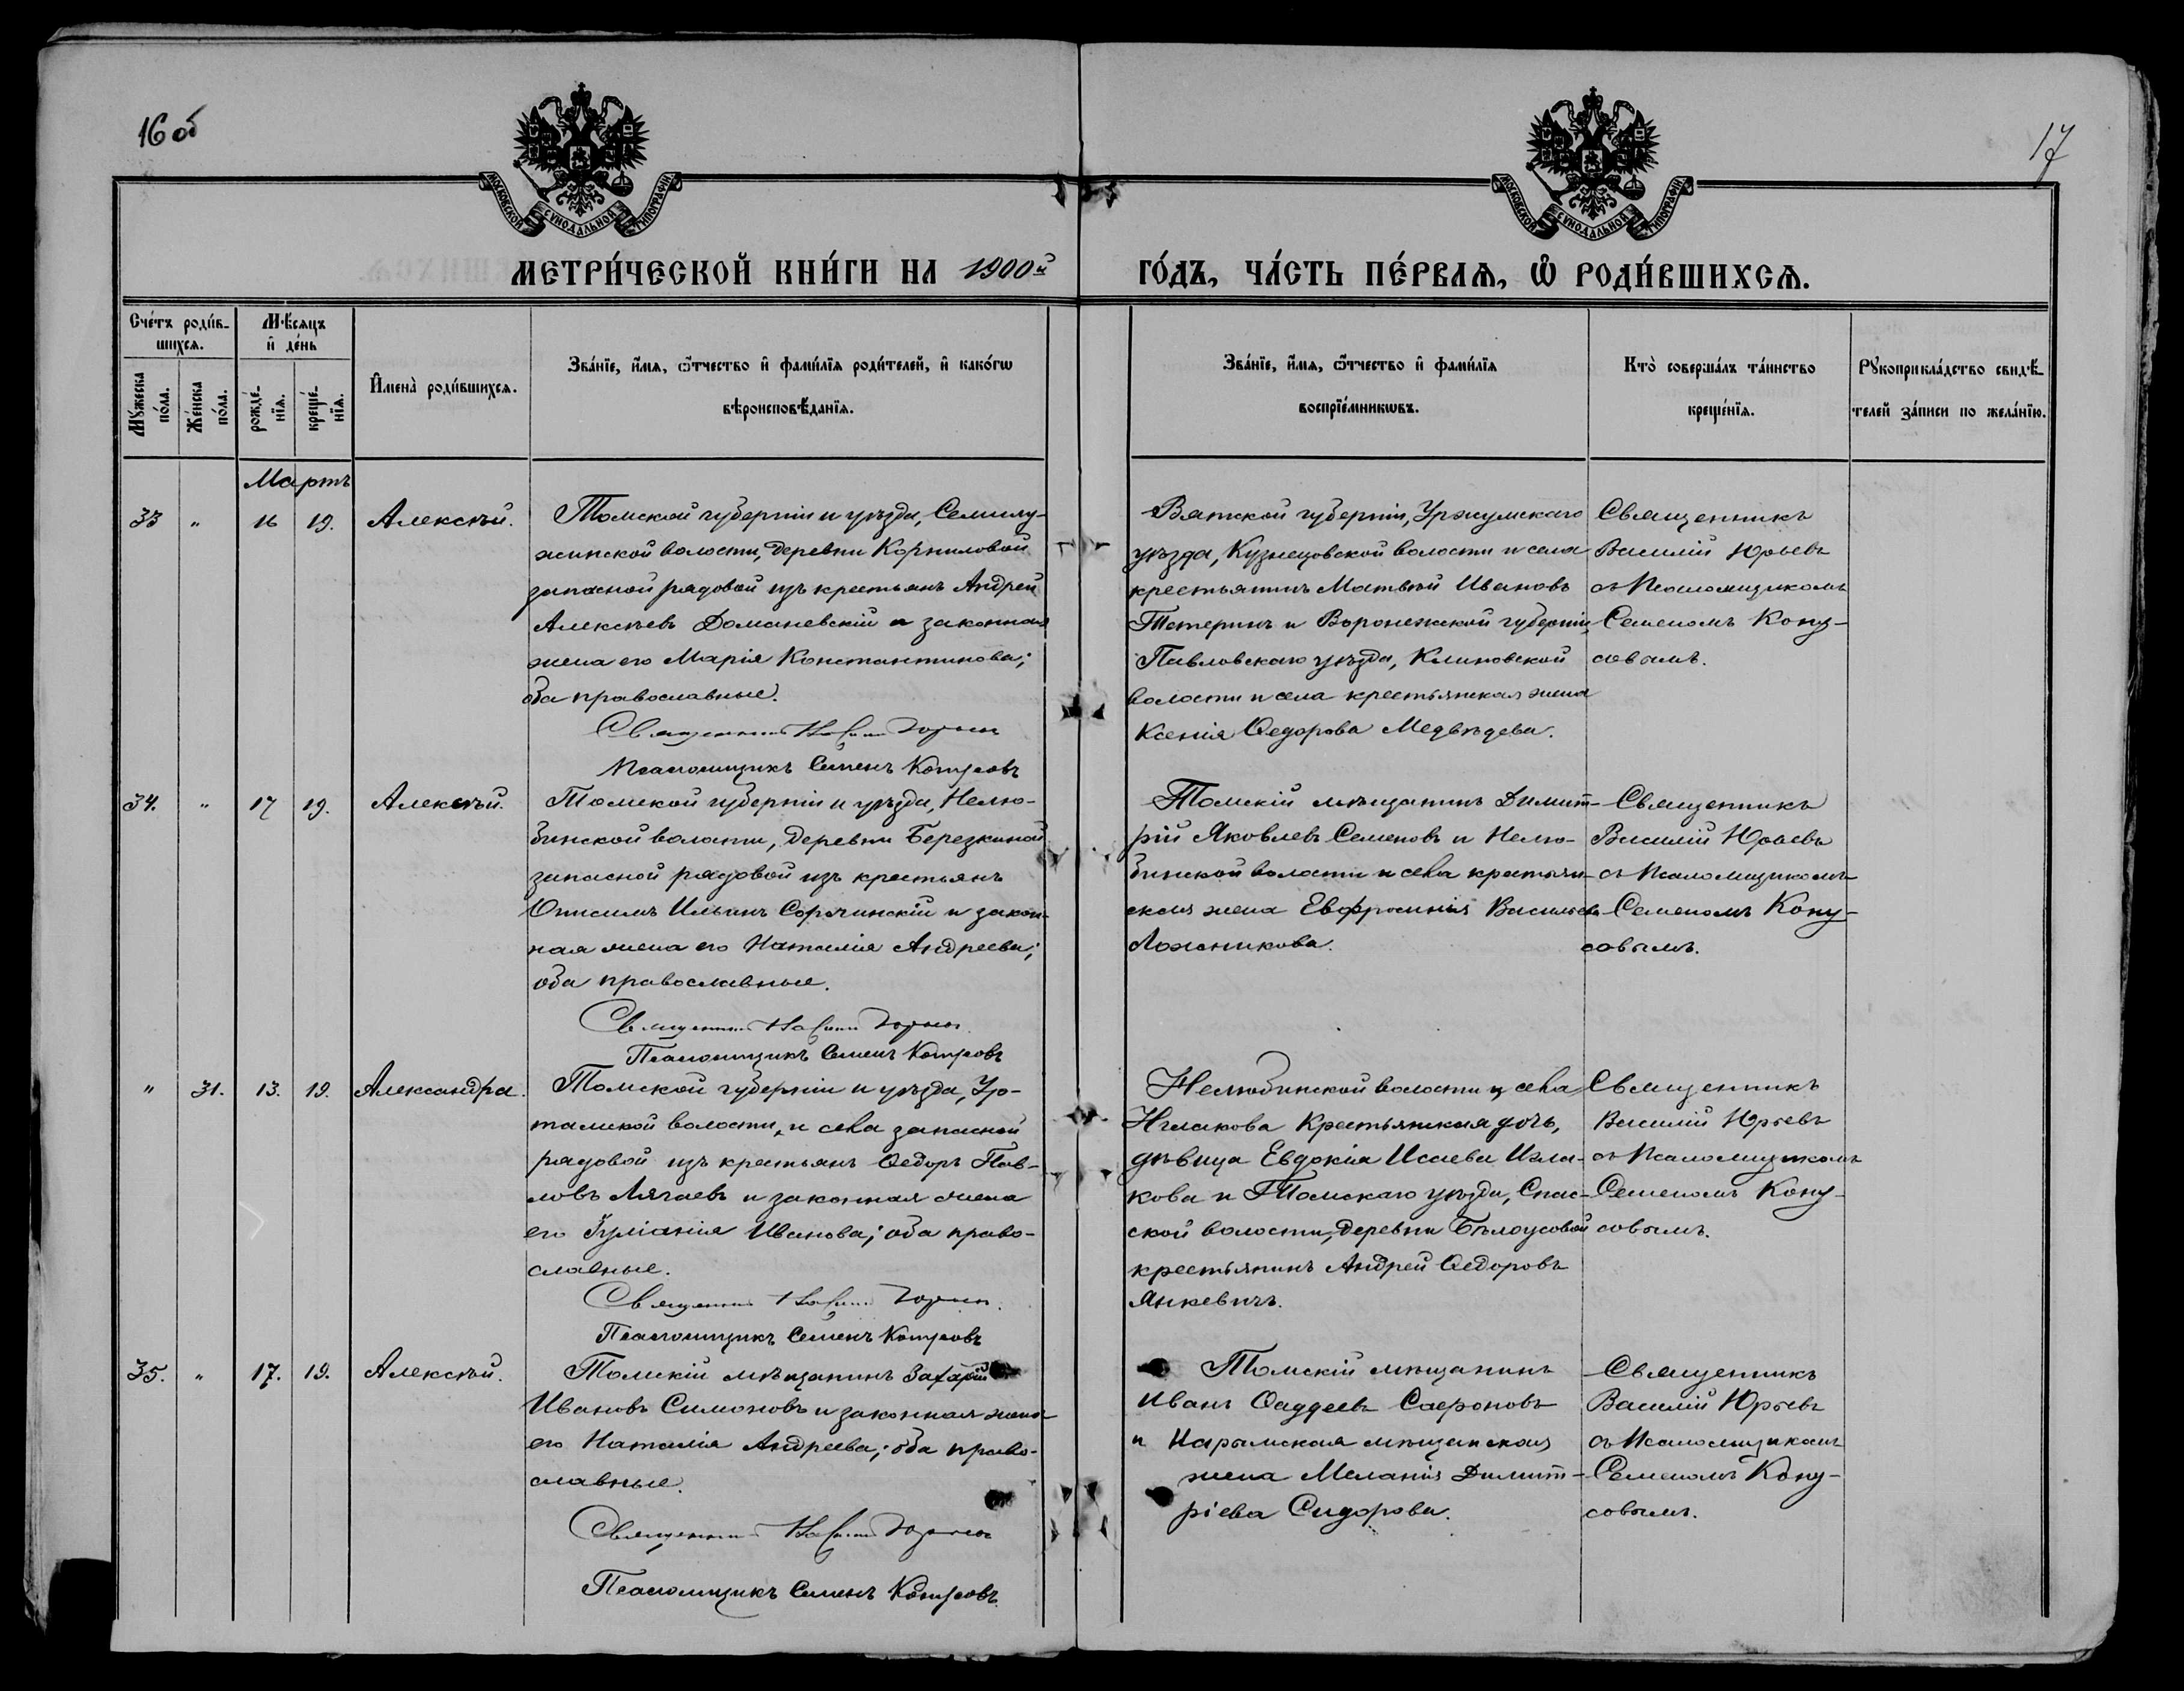 16 об
17
МОСКОВСКОЙ СѴНОДАЛЬНОЙ ТИПОГРАФІИ
МОСКОВСКОЙ СѴНОДАЛЬНОЙ ТИПОГРАФІИ
МЕТРИ́ЧЕСКОЙ КНИ́ГИ НА 1900й
ГО́ДЪ, ЧА́СТЬ ПЕ́РВАѦ, Ѽ РОДИ́ВШИХСѦ.
Сче́тъ роди́в-
шихсѧ.
Мꙋ́жеска
по́ла.
Же́нска
по́ла.
Мѣ́сяцъ
и҆ де́нь
рожде́-
нїѧ.
креще́-
нїѧ.
И҆мена̀ роди́вшихсѧ.
Зва́нїе, и҆́мѧ, ѻ҆́тчество и҆ фами́лїѧ роди́телей, и҆ како́гѡ
вѣроисповѣ́данїѧ.
Зва́нїе, и҆́мѧ, ѻ҆́тчество и҆ фами́лїѧ
воспрїе́мникѡвъ.
Кто̀ соверша́лъ та́инство
креще́нїѧ.
Рꙋкоприкла́дство свидѣ́-
телей за́писи по жела́нїю.
Мартъ
33 " 16 19. Алексѣй.
Томской губерніи и уѣзда, Семилу-
жинской волости, деревни Корниловой
запасной рядовой изъ крестьянъ Андрей
Алексѣевъ Доманевскій и законная
жена его Марія Константинова;
оба православные.
Священникъ Василій Юрьевъ
Псаломщикъ Семенъ Конусовъ
Вятской губерніи, Уржумскаго
уѣзда, Кузнецовской волости и села
крестьянинъ Матвѣй Ивановъ
Тетеринъ и Воронежской губерніи,
Павловскаго уѣзда, Клиновской
волости и села крестьянская жена
Ксенія Ѳедорова Медвѣдева.
Священникъ
Василій Юрьевъ
съ Псаломщикомъ
Семеномъ Кону-
совымъ.
34. " 17 19. Алексѣй.
Томской губерніи и уѣзда, Нелю-
бинской волости, деревни Березкиной
запасной рядовой изъ крестьянъ
Онисимъ Ильинъ Сорочинскій и закон-
ная жена его Наталія Андреева;
оба православные.
Священникъ Василій Юрьевъ
Псаломщикъ Семенъ Конусовъ
Томскій мѣщанинъ Димит-
рій Яковлевъ Семеновъ и Нелю-
бинской волости и села крестьян-
ская жена Евфросинія Васильева
Ложникова.
Священникъ
Василій Юрьевъ
съ Псаломщикомъ
Семеномъ Кону-
совымъ.
" 31. 13. 19. Александра.
Томской губерніи и уѣзда,
волости, и села запасной
рядовой изъ крестьянъ Ѳедоръ Пав-
ловъ Лячаевъ и законная жена
его Іуліанія Иванова; оба право-
славные.
Священникъ Василій Юрьевъ
Псаломщикъ Семенъ Конусовъ
Нелюбинской волости и села
крестьянская дочь,
дѣвица Евдокія Исаева Изла-
кова и Томскаго уѣзда, Спас-
ской волости, деревни Бѣлоусовой
крестьянинъ Андрей Ѳедоровъ
Янкевичъ.
Священникъ
Василій Юрьевъ
съ Псаломщикомъ
Семеномъ Кону-
совымъ.
35. " 17. 19. Алексѣй.
Томскій мѣщанинъ Захарій
Ивановъ Симоновъ и законная жена
его Наталія Андреева; оба право-
славные.
Священникъ Василій Юрьевъ
Псаломщикъ Семенъ Конусовъ
Томскій мѣщанинъ
Иванъ Ѳаддеевъ Сафроновъ
и Нарымская мѣщанская
жена Меланія Димит-
ріева Сидорова.
Священникъ
Василій Юрьевъ
съ Псаломщикомъ
Семеномъ Кону-
совымъ.